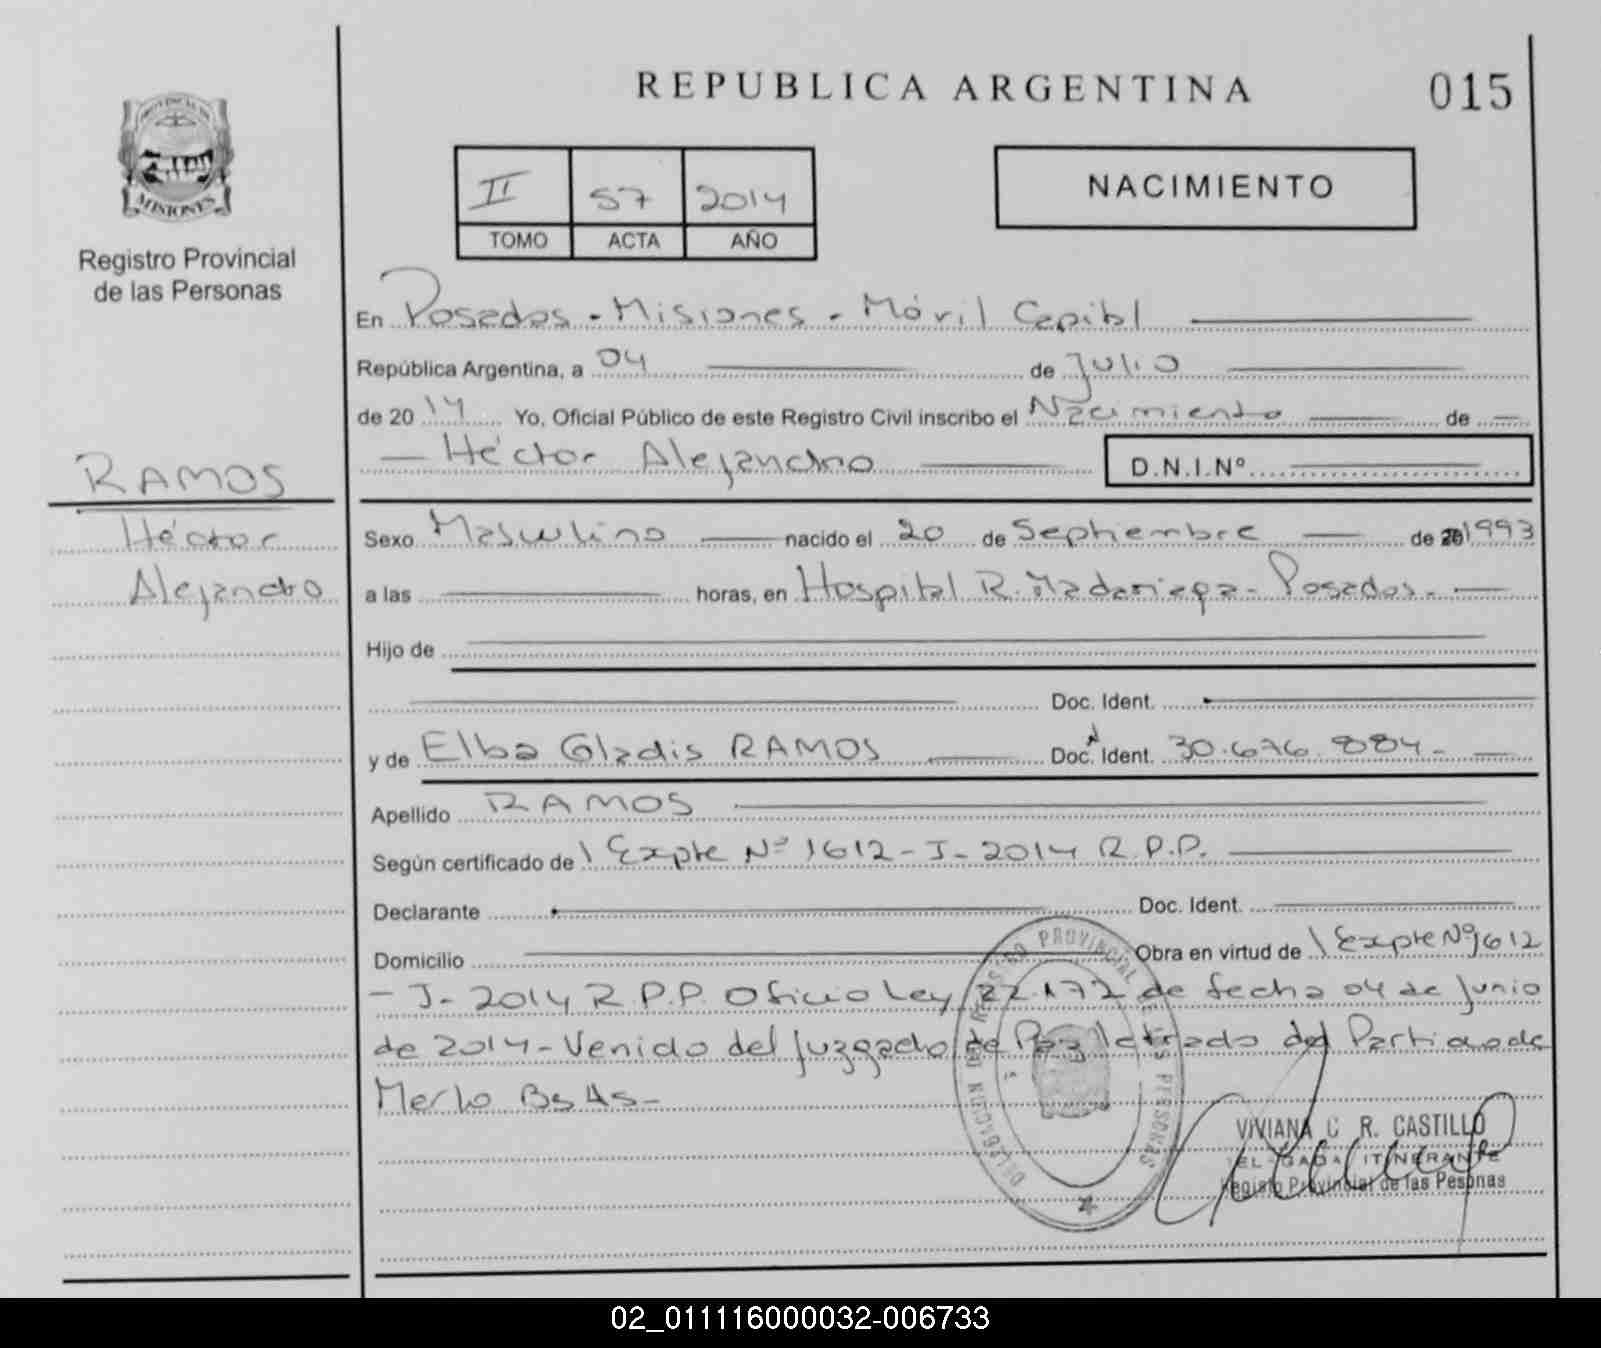 REPUBLICA ARGENTINA
015
PROVINCIA DE
MISIONES
Registro Provincial
de las Personas
II 57 2014
TOMO ACTA AÑO
NACIMIENTO
En Posadas - Misiones - Móvil Capital
República Argentina, a 04 de Julio
de 2014 Yo, Oficial Público de este Registro Civil inscribo el Nacimiento de
Héctor Alejandro D.N.I.Nº
RAMOS
Héctor
Alejandro
Sexo Masculino nacido el 20 de Septiembre de 1993
a las horas, en Hospital R. Madariaga - Posadas.
Hijo de
Doc. Ident.
y de Elba Gladis RAMOS Doc. Ident. 30.676.884-
Apellido RAMOS
Según certificado de Expte Nº 1612-J-2014 R.P.P.
Declarante Doc. Ident.
Domicilio Obra en virtud de Expte Nº 1612
- J- 2014 R.P.P. Oficio Ley 22.172 de fecha 04 de Junio
de 2014 - Venido del Juzgado de Paz letrado del Partido de
Merlo Bs As-
REGISTRO PROVINCIAL DE LAS PERSONAS
VIVIANA C R. CASTILLO
DELEGADA ITINERANTE
Registo Provincial de las Pesonas
02_011116000032-006733